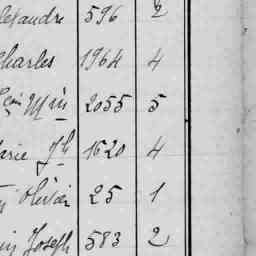 lexandre 596 2
Charles 1964 4
Min 2055 5
arie Jh 1620 4
Olivier 25 1
Joseph 583 2